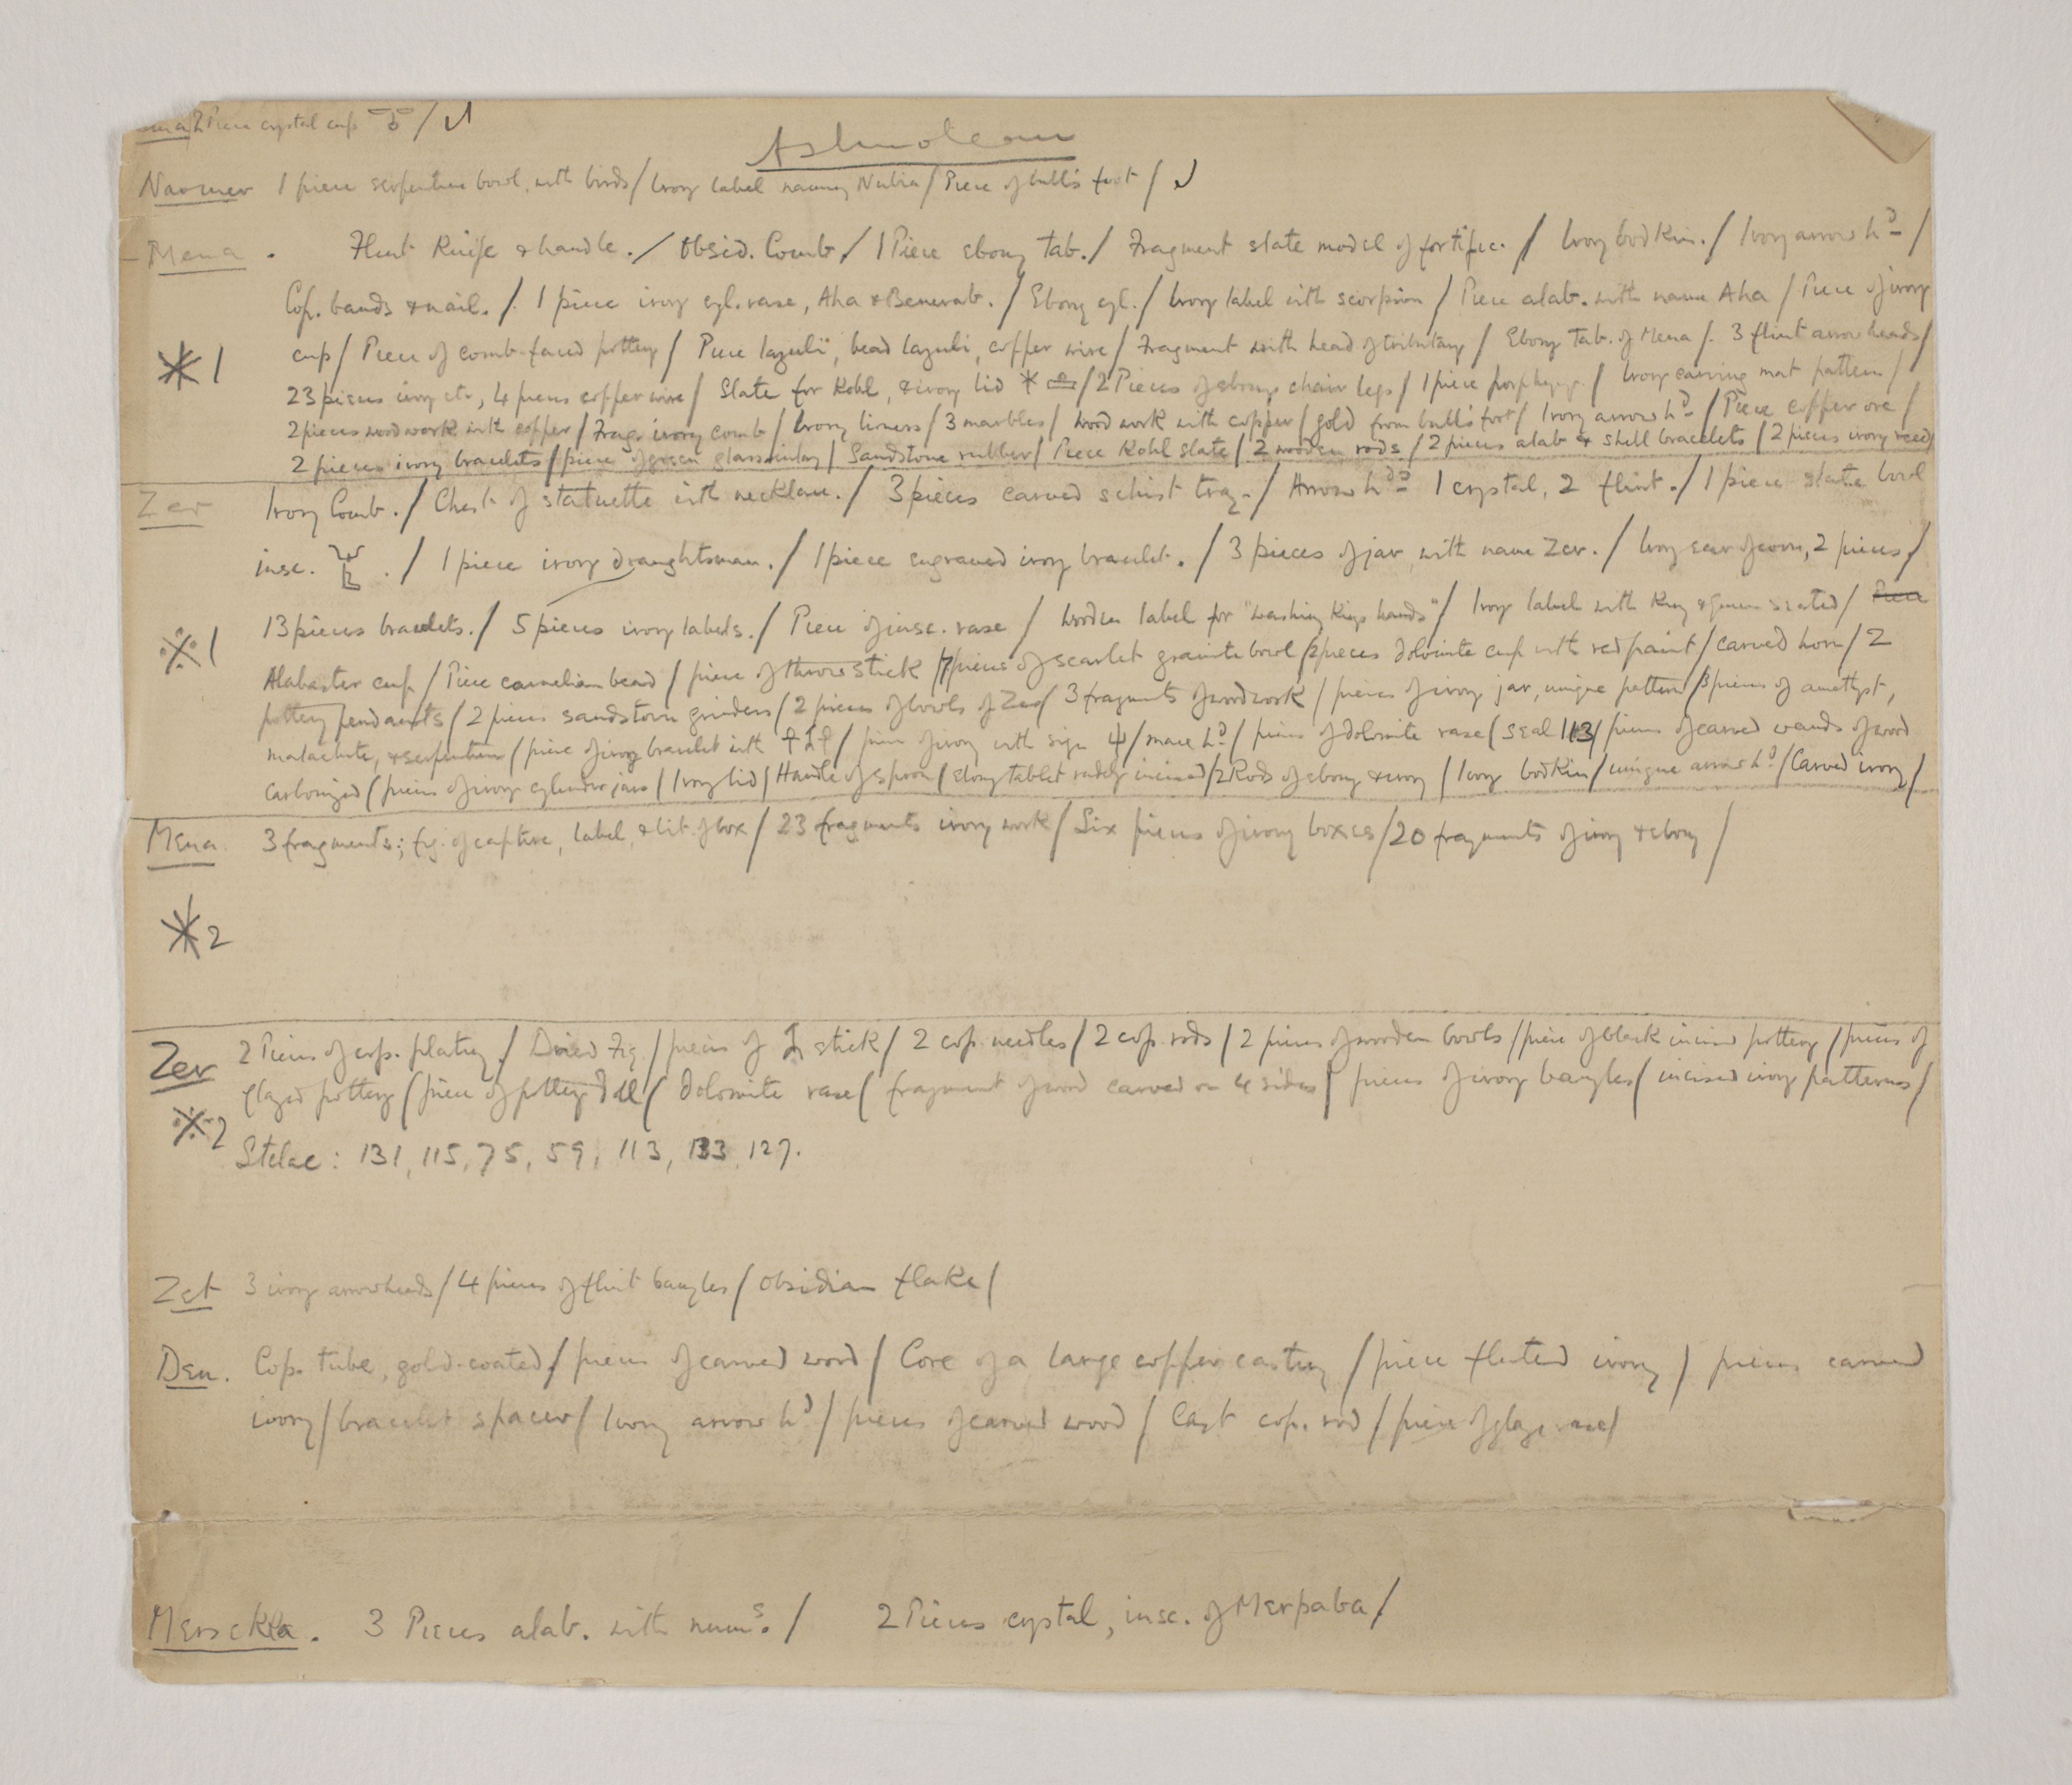 2 Piece crystal cup / √
Ashmolean
Narmer 1 piece serpentine bowl, with birds / Ivory label naming Nubia / Piece of bull's foot / √
Mena . Flint Knife & handle. / Obsid. Comb / 1 Piece ebony Tab. / Fragment slate model of fortific. / Ivory bodkin. / Ivory arrow hd /
Cop. bands & nail. / 1 piece ivory cyl. vase, Aha & Benerab. / Ebony cyl. / Ivory label with scorpion / Piece alab. with name Aha / Piece of ivory
cup / Piece of comb-faced pottery / Piece lazuli, bead lazuli, copper wire / Fragment with head of tributary / Ebony Tab. of Mena /. 3 flint arrowheads /
*1
23 pieces ivory etc, 4 pieces copper wire / Slate for Kohl, & ivory lid * / 2 Pieces of ebony chair legs / 1 piece porphyry. / Ivory carving mat pattern /
2 pieces woodwork with copper / Frag. ivory comb / Ivory liners / 3 marbles / Wood work with copper / gold from bull's foot / Ivory arrow hd / Piece copper ore /
2 pieces ivory bracelets / piece of green glass inlay / Sandstone rubber / Piece Kohl slate / 2 wooden rods / 2 pieces alab & shell bracelets / 2 pieces ivory reed /
Zer Ivory Comb. / Chest of statuette with necklace. / 3 pieces carved schist tray. / Arrow hds 1 crystal, 2 flint. / 1 piece slate bowl
insc. . / 1 piece ivory draughtsman. / 1 piece engraved ivory bracelet. / 3 pieces of jar with name Zer. / Ivory ear of corn, 2 pieces /
※1 13 pieces bracelets. / 5 pieces ivory labels. / Piece of insc. vase / Wooden label for "washing Kings hands" / Ivory label with King & Queen seated / Piece
Alabaster cup / Piece carnelian bead / piece of throw stick / 7 pieces of scarlet granite bowl / 2 pieces dolomite cup with red paint / carved horn / 2
pottery pendants / 2 pieces sandstone grinders / 2 pieces of bowls of Zer / 3 fragments of woodwork / pieces of ivory jar, unique pattern / 3 pieces of amethyst,
malachite, & serpentine / piece of ivory bracelet with / piece of ivory with sign / mace hd / piece of dolomite vase / seal 113 / pieces of carved wands of wood
carbonized / pieces of ivory cylinder jars / Ivory lid / Handle of spoon / Ebony tablet rudely incised / 2 Rods of ebony & ivory / Ivory bodkin / unique arrow hd / Carved ivory /
Mena 3 fragments; fig. of captive, label, & bit of box / 23 fragments ivory work / Six pieces of ivory boxes / 20 fragments of ivory & ebony /
*2
Zer 2 Pieces of cop. plating / Dried Fig. / pieces of stick / 2 cop needles / 2 cop. rods / 2 pieces of wooden bowls / piece of black incised pottery / pieces of
glazed pottery / piece of pottery / dolomite vase / fragment of wood carved on 4 sides / pieces of ivory bangles / incised ivory patterns /
※2
Stelae: 131, 115, 75, 59, 113, 133, 127.
Zet 3 ivory arrowheads / 4 pieces of flint bangles / Obsidian flake /
Den. Cop. tube, gold-coated / pieces of carved wood / Core of a large copper casting / piece fluted ivory / pieces carved
ivory / bracelet spacer / Ivory arrow hd / pieces of carved wood / Cast cop. rod / piece of glaze vase /
Mersekha. 3 Pieces alab. with nums. / 2 Pieces crystal, insc. of Merpaba /